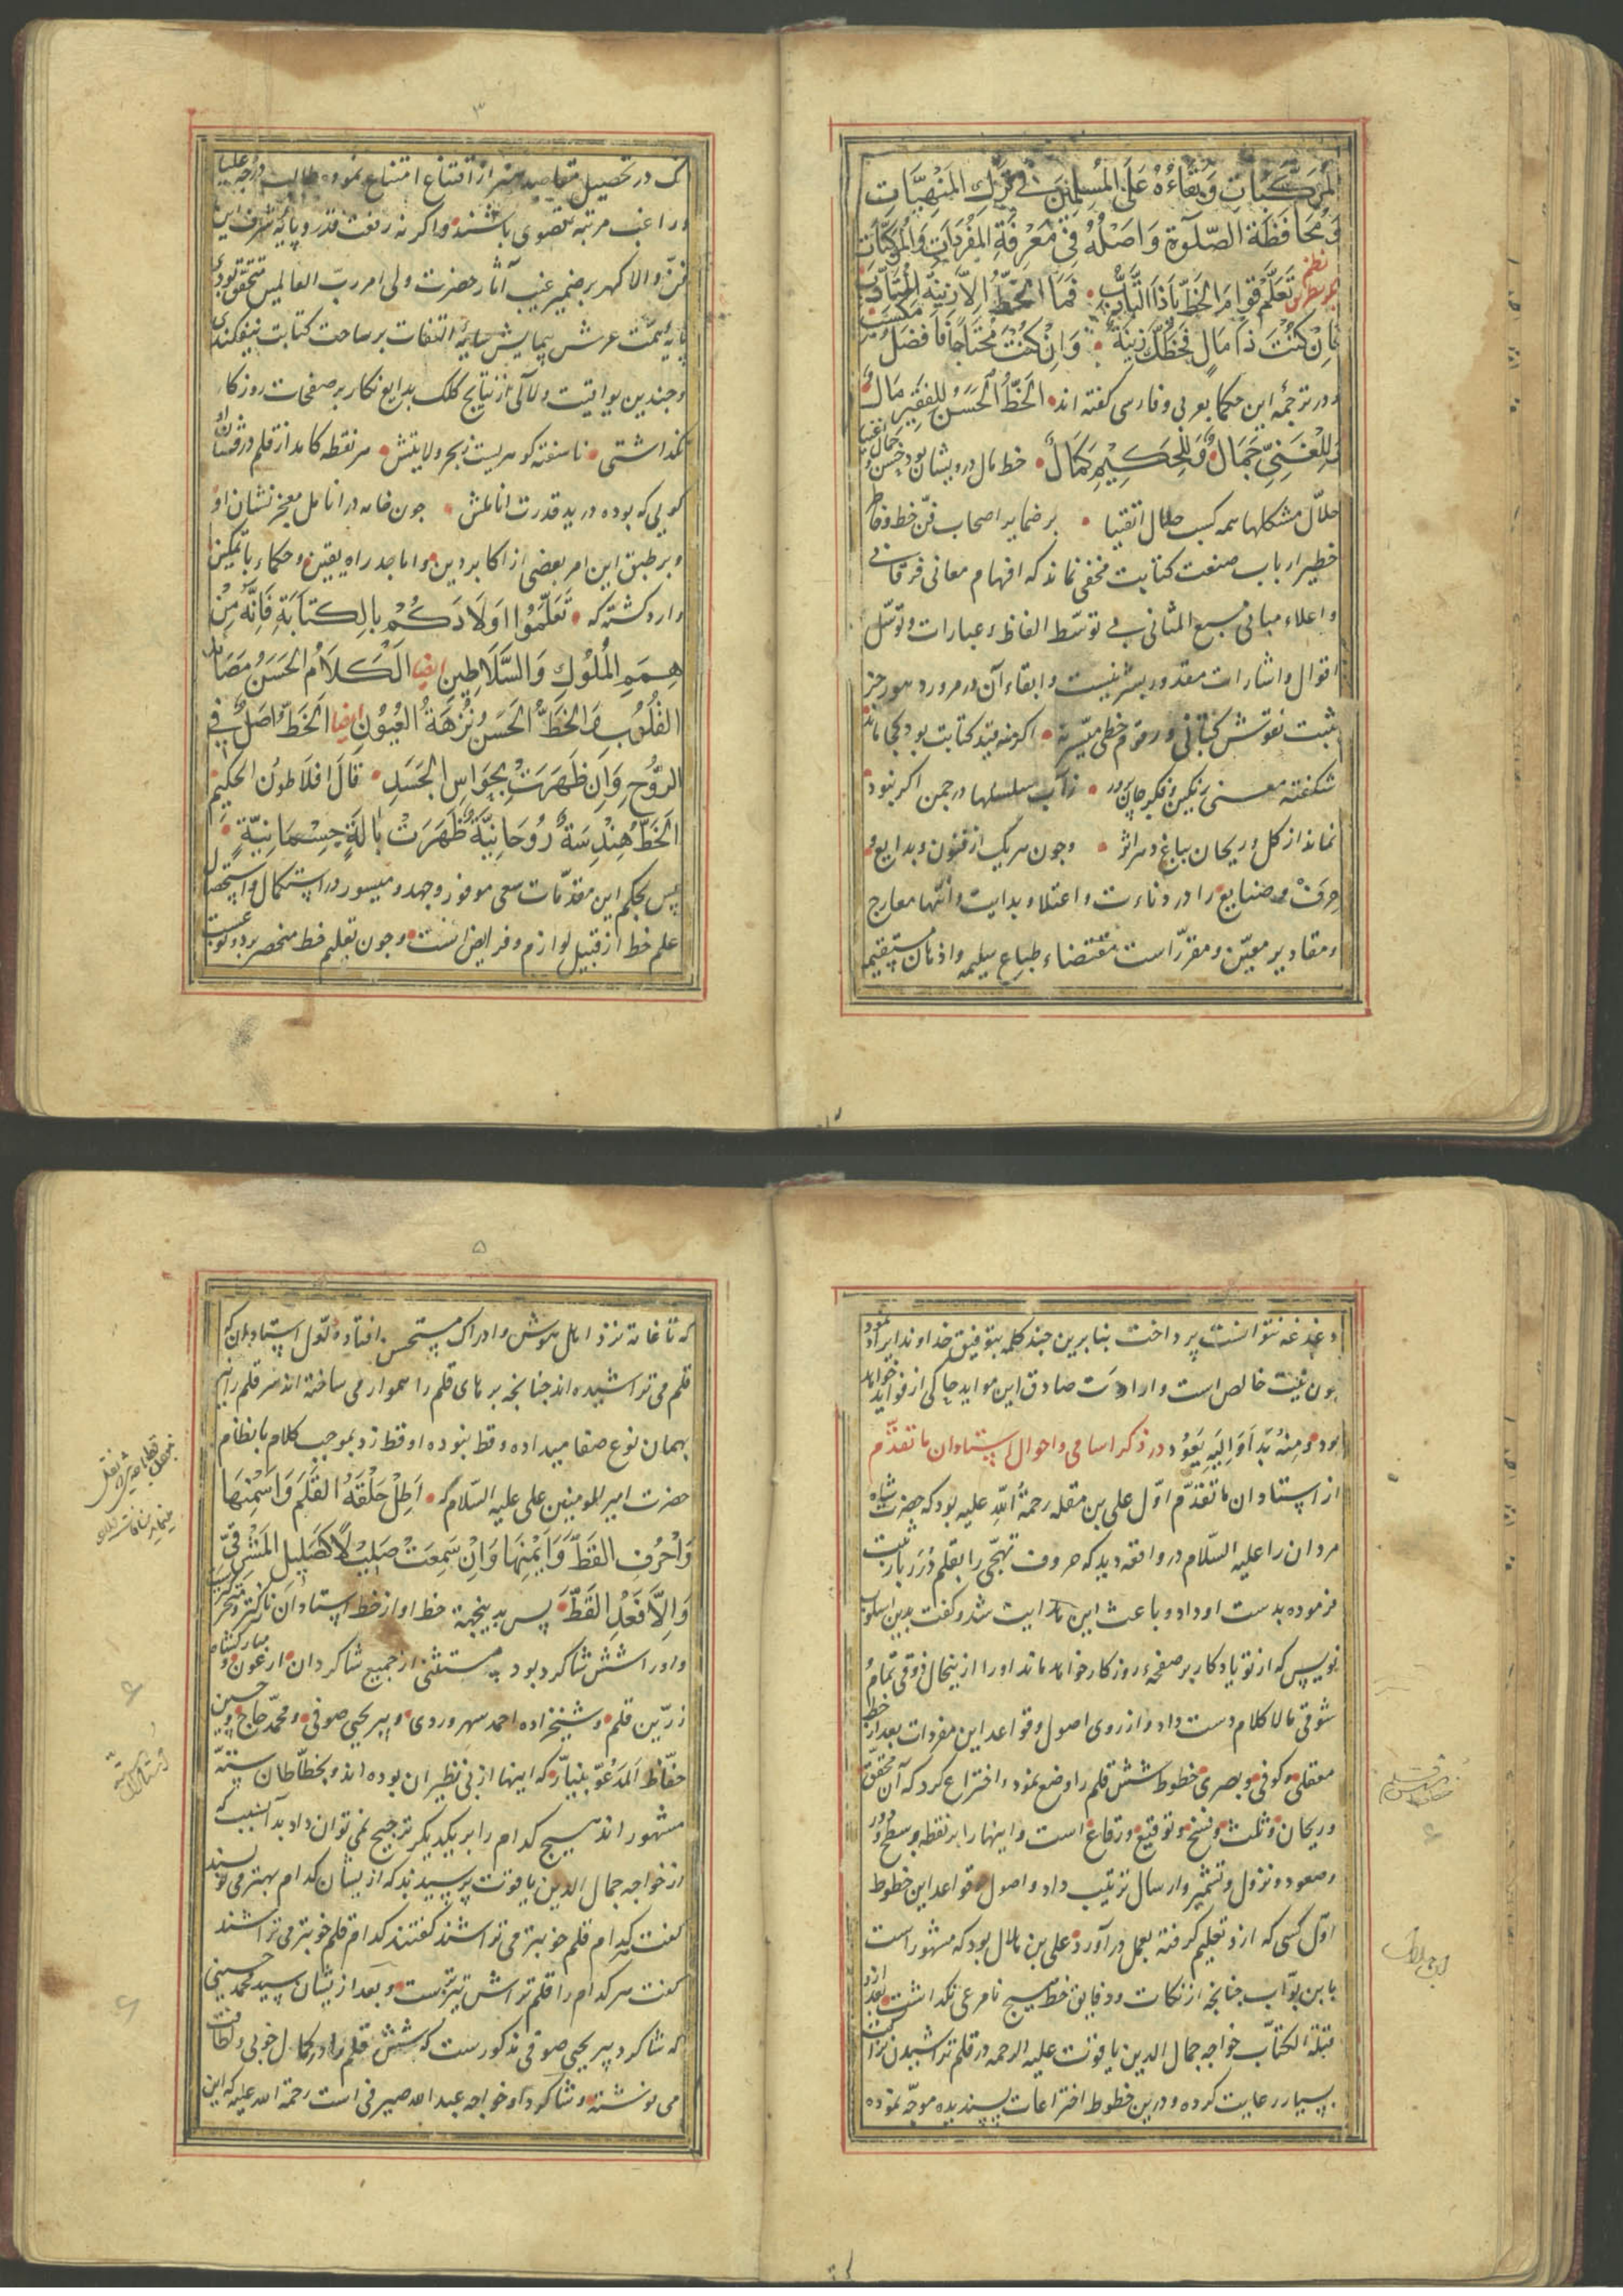 المركبات وبقاءه على المسلمين في ترك المنهيات
ومحافظة الصلوة واصله في معرفة المفردات والمركبات
نظم
تعلم قوام الخط یا ذا التادب • فما الخط الا زینة المتادب
فان کنت ذا مال فخطک زینة • وان کنت محتاجا فافضل مکسب
ودر ترجمهٔ این حکما بعربی وفارسی کفته اند • الخط الحسن للفقیر مال
وللغنی جمال وللحکیم کمال • خط مال درویشان بود حسن و جمال اغنیا
حلال مشکلها همه کسب حلال اتقیا • بر ضمایر اصحاب فن خط وخاطر
خطیر ارباب صنعت کتابت مخفی نماند که افهام معانی فرقانی
واعلاء مبانی سبع المثانی بی توسط الفاظ وعبارات وتوسل
اقوال واشارات مقدور بشر نیست وابقاء آن در مرور دهور جز
ثبت نقوش کتابی ورقوم خطی میسر نه • اکر نه قید کتابت بود کجا ماند
شکفته معنی رنکین فکر جان پرور • ز آب سلسلها در چمن اکر نبود
نماند از کل وریحان بباغ و راغ اثر • وچون هریک از فنون وبدایع و
حرف وصنایع را در دناءت واعتلاء بدایت وانتها معارج
ومقادیر معین ومقرر است مقتضاء طباع سلیمه واذهان مستقیمه
۳
ک در تحصیل مقاصد هنر از اقتناع امتناع نموده طالب درجه علیا
وراغب مرتبه قصوی باشند واکر نه رفعت قدر وپایهٔ شرف این
فن والا کهر بر ضمیر غیب آثار حضرت ولی امر رب العالمین متحقق بودی
پایهٔ همت عرش پیمایش سایهٔ التفات بر ساحت کتابت نیفکندی
وچندین یواقیت ولآلی از نتایج کلک بدایع نکار بر صفحات روزکار
نکذاشتی • ناسفته کوهریست ز بحر ولایتش • هر نقطه کامد از قلم در فشان او
کویی که بوده در ید قدرت اناملش • چون خامه در انامل معجز نشان او
وبر طبق این امر بعضی از اکابر دین واماجد راه یقین وحکماء با تمکین
وارد کشته که • تعلموا اولادکم بالکتابة فانه من
همم الملوک والسلاطین ایضا الکلام الحسن مصائد
القلوب والخط الحسن نزهة العیون ایضا الخط اصل فی
الروح وان ظهرت بحواس الجسد • قال افلاطون الحکیم
الخط هندسة روحانیة ظهرت بالة جسمانیة •
پس بحکم این مقدمات سعی موفور وجهد ومیسور در استکمال واستحصال
علم خط از قبیل لوازم وفرایض است وچون تعلیم خط منحصر بر دو نوبت
دغدغه نتوانست پرداخت بنابرین چند کلمه بتوفیق خداوند ایراد نمود
چون نیت خالص است وارادت صادق این مواید حاکی از فواید خواهد
بود ومنه بدا والیه یعود در ذکر اسامی واحوال استادان ما تقدم
از استادان ما تقدم اول علی بن مقله رحمة الله علیه بود که حضرت شاه
مردان را علیه السلام در واقعه دید که حروف تهجی را بقلم درربار ثبت
فرموده بدست او داد وباعث این هدایت شد وکفت بدین اسلوب
نویس که از تو یادکار بر صفحهٔ روزکار خواهد ماند او را ازین حال ذوقی تمام و
شوقی مالا کلام دست داد واز روی اصول وقواعد این مفردات بعد از خط
معقلی وکوفی وبصری خطوط شش قلم را وضع نمود واختراع کرد که آن محقق
وریحان وثلث ونسخ وتوقیع ورقاع است واینها را بر نقطه وسطح ودور
وصعود ونزول وتشمیر وارسال ترتیب داد واصول قواعد این خطوط
اول کسی که ازو تعلیم کرفته بعمل در آورد علی بن هلال بود که مشهور است
بابن بواب چنانچه از نکات ودقایق خط هیچ نامرعی نکذاشت بعد ازو
قبلة الکتاب خواجه جمال الدین یاقوت علیه الرحمه در قلم تراشیدن نزاکت
بسیار رعایت کرده ودرین خطوط اختراعات پسندیده موجه نموده
۵
که تا غایة نزد اهل هوش وادراک مستحسن افتاده واول استادان که
قلم می تراشیده اند چنانچه بر های قلم را هموار می ساخته اند سر قلم را نیز
بهمان نوع صفا میداده وقط نبوده او قط زد بموجب کلام با نظام
حضرت امیر المومنین علی علیه السلام که • اطل جلفة القلم واسمنها
واحرف القط وایمنها وان سمعت صلیلا کصلیل المشرفی
والا فعد القط • پس بدینجهة خط او از خط استادان نازکتر
واو را شش شاکرد بود مستثنی از جمیع شاکردان ارغون و مبارکشاه
زرین قلم وشیخزاده احمد سهروردی وپیر یحیی صوفی ومحمد حاج وحسین
حفاظ المدعو بنیار که اینها از بی نظیران بوده اند وبخطاطان سته
مشهور اند هیچ کدام را بر یکدیکر ترجیح نمی توان داد بدآنسبب که
از خواجه جمال الدین یاقوت پرسیدند که از یشان کدام بهتر می نویسند
کفت کدام قلم خوبتر می تراشند کفتند کدام قلم خوبتر می تراشند
کفت هر کدام را قلمتراش تیزترست وبعد از یشان سید محمد حسینی
که شاکرد پیر یحیی صوفی مذکورست که شش قلم را در کمال خوبی ولطافت
می نوشته وشاکرد او خواجه عبد الله صیرفی است رحمة الله علیه که این